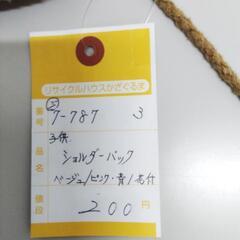 リサイクルハウスかざぐるま
番号 7-787 3
子供
品名 ショルダーバック
ベージュ/ピンク・青/
値段 200円